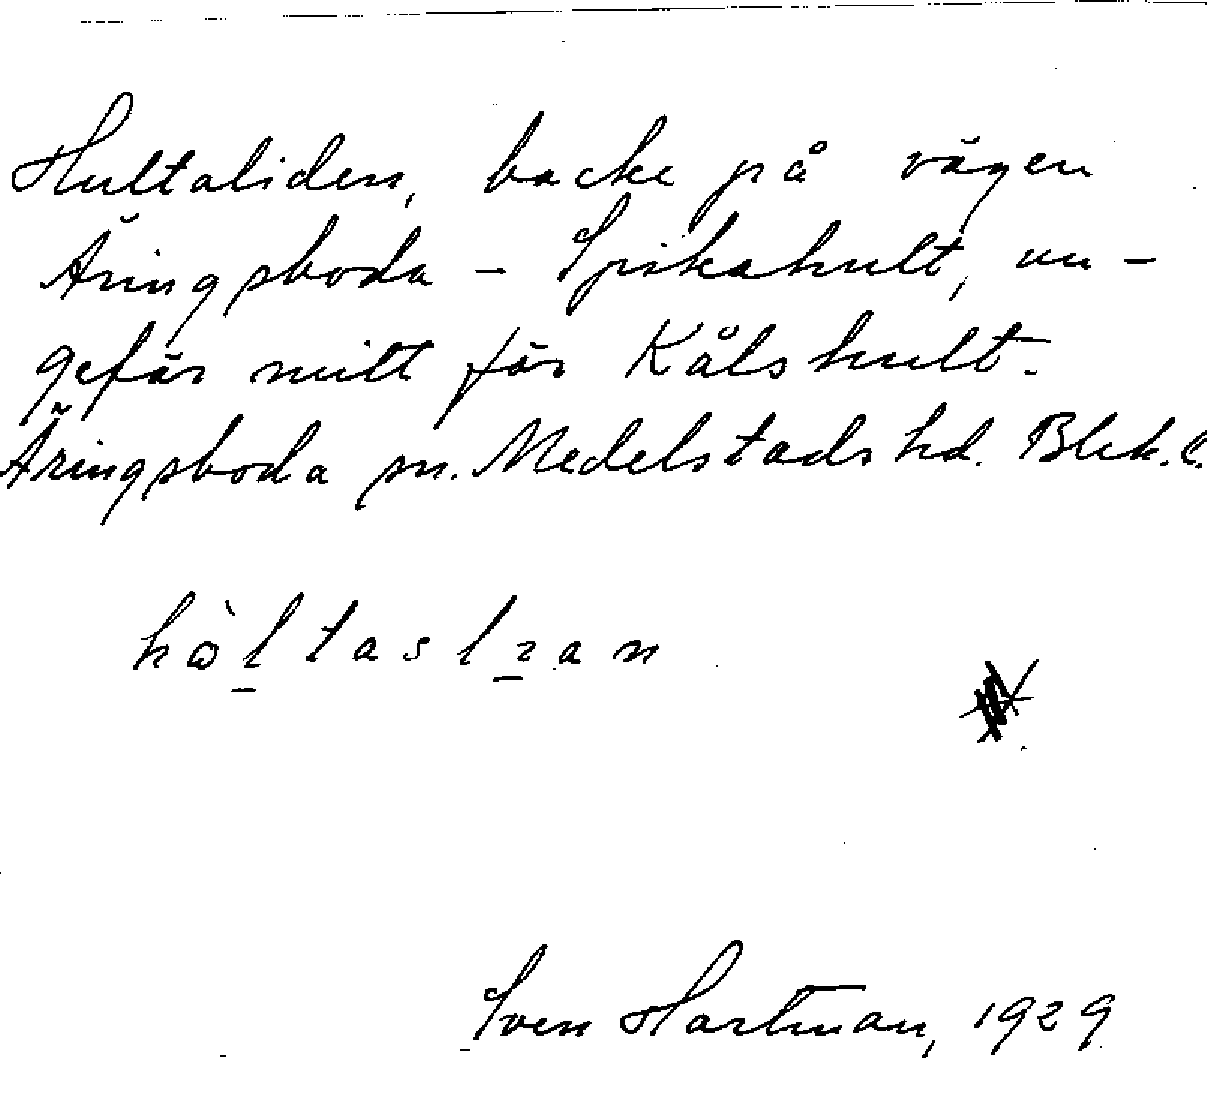 Hultaliden, backe på vägen
Äringsboda – Spikahult, un-
gefär mitt för Kålshult.
Äringsboda sn. Medelstads hd. Blek. l.
Sven Hartman, 1929